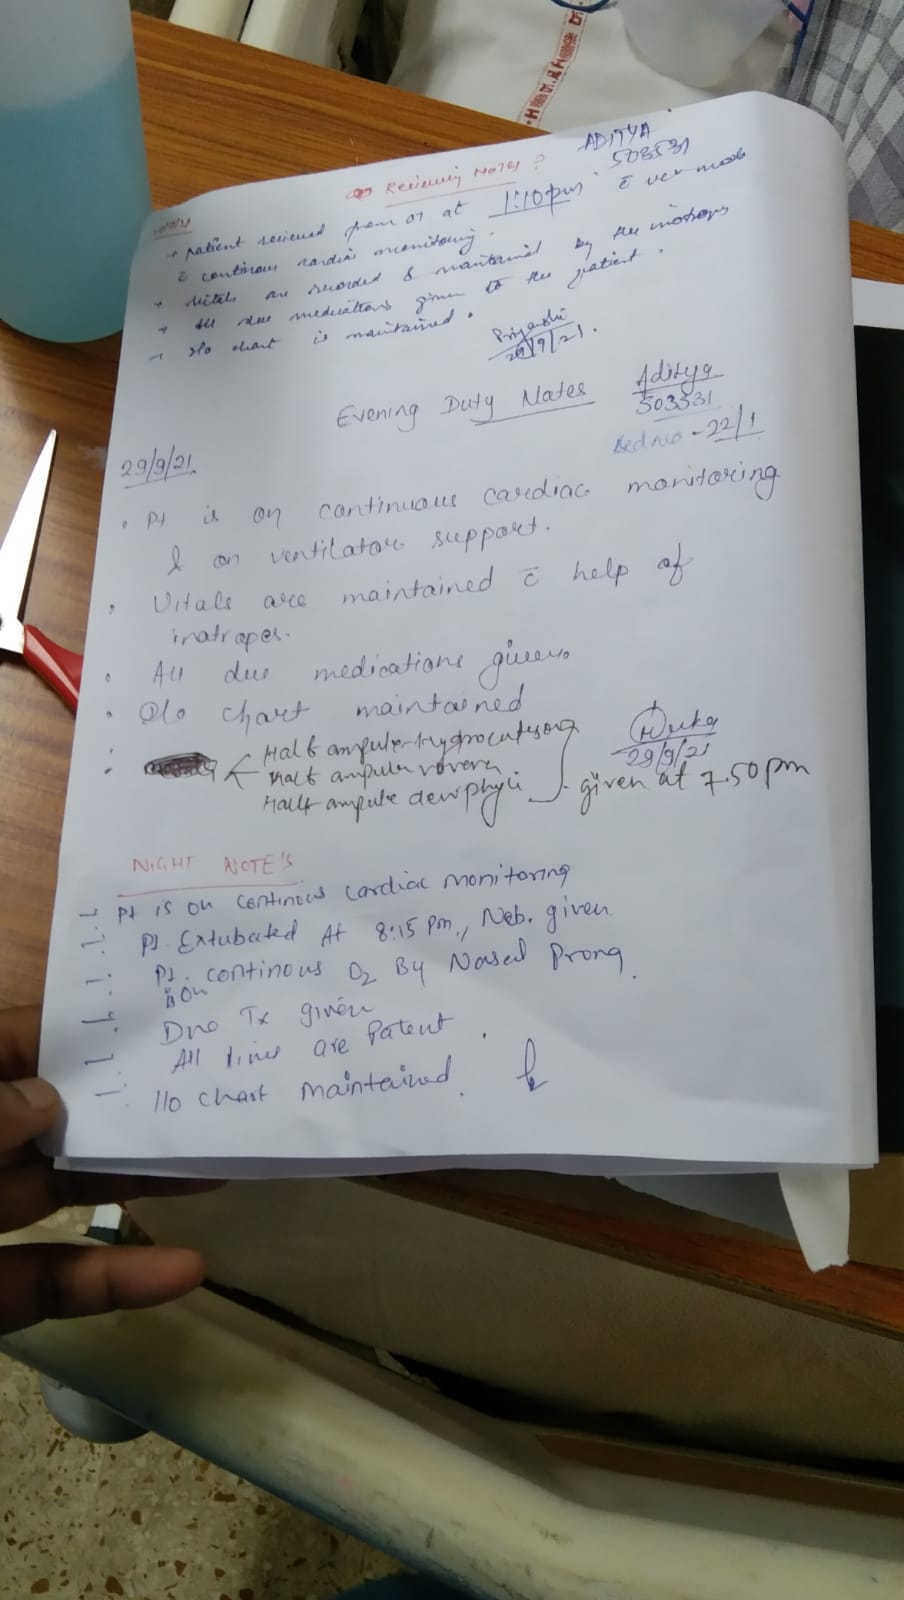 Receiving Notes :
ADITYA
503531
→ patient recieved from OT at 1:10pm c̄ vcv mode
c̄ continous cardiac monitoring.
→ Vitals are recorded & maintained by the inotrops
→ All due medications given to the patient.
→ I/o chart is maintained.
29/9/21.
Evening Duty Notes
Aditya
503531
Bed no - 22/1
29/9/21
• Pt is on continuous cardiac monitoring
& on ventilator support.
• Vitals are maintained c̄ help of
inotropes.
• All due medications given.
• I/o chart maintained
29/9/21
Half ampule
Half ampule
Half ampule
given at 7.50pm
NIGHT NOTE'S
Pt is on continous cardiac monitoring
Pt. Extubated At 8:15 pm., Neb. given.
Pt. is on continous O2 By Nasal Prong.
Due Tx given
All lines are Patent.
I/o chart maintained.